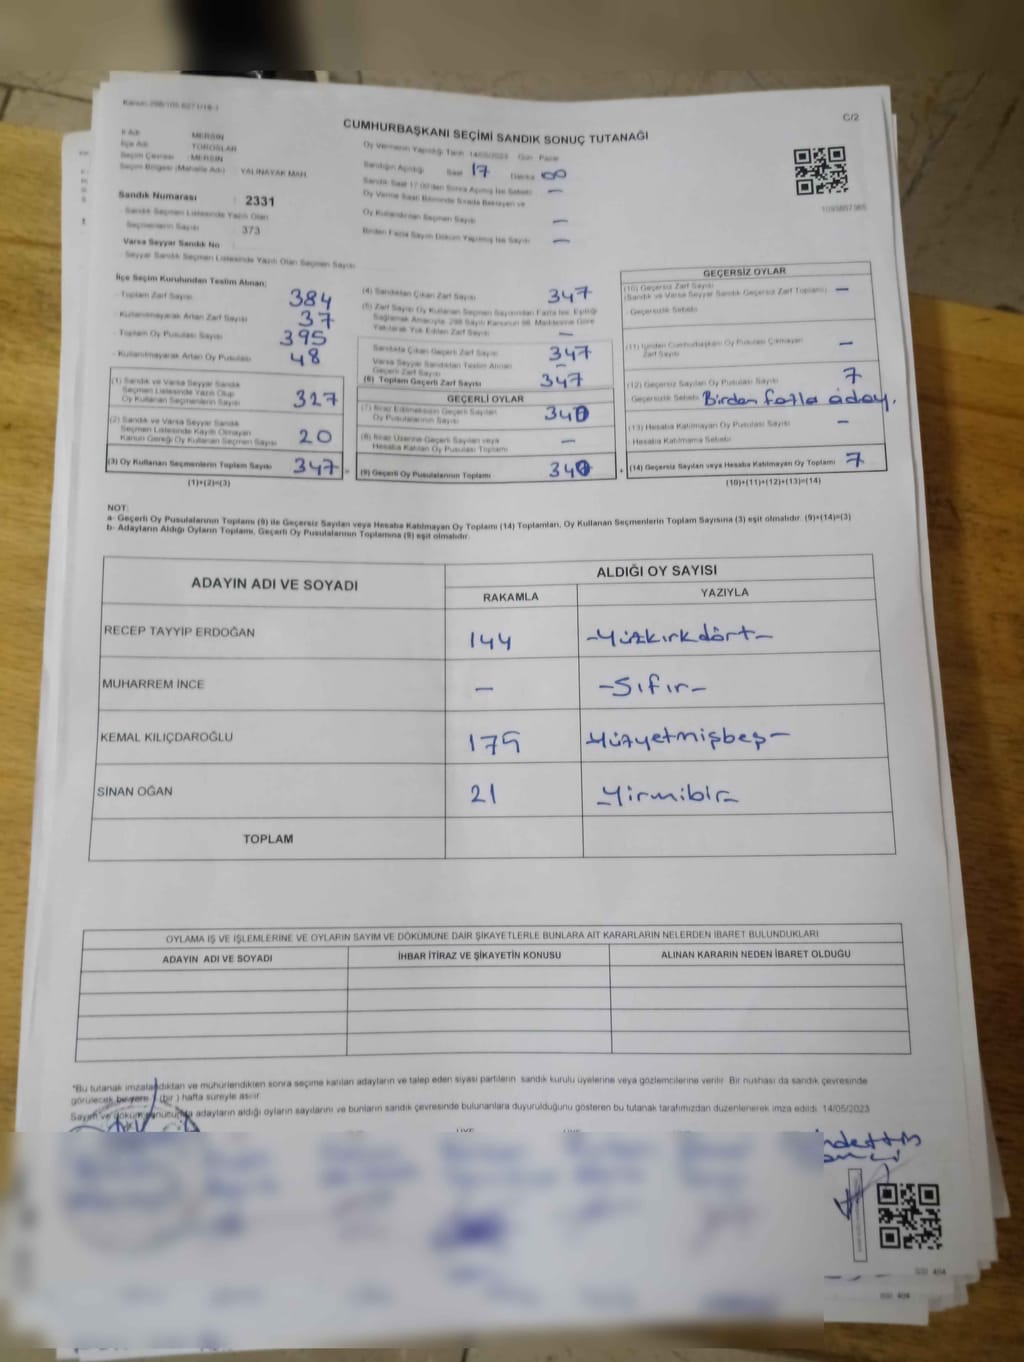 Kanun:298/105 6271/18-1
C/2
CUMHURBAŞKANI SEÇİMİ SANDIK SONUÇ TUTANAĞI
İl Adı MERSİN
İlçe Adı TOROSLAR
Seçim Çevresi : MERSİN
Seçim Bölgesi (Mahalle Adı) YALINAYAK MAH.
Sandık Numarası : 2331
Sandık Seçmen Listesinde Yazılı Olan
Seçmenlerin Sayısı 373
Varsa Seyyar Sandık No
Seyyar Sandık Seçmen Listesinde Yazılı Olan Seçmen Sayısı
Oy Vermenin Yapıldığı Tarih 14/05/2023 Gün Pazar
Sandığın Açıldığı Saat 17 Dakika 00
Sandık Saat 17:00'den Sonra Açılmış İse Sebebi —
Oy Verme Saati Bitiminde Sırada Bekleyen ve
Oy Kullandırılan Seçmen Sayısı —
Birden Fazla Sayım Döküm Yapılmış İse Sayısı —
İlçe Seçim Kurulundan Teslim Alınan;
- Toplam Zarf Sayısı 384
- Kullanılmayarak Artan Zarf Sayısı 37
- Toplam Oy Pusulası Sayısı 395
- Kullanılmayarak Artan Oy Pusulası 48
(1) Sandık ve Varsa Seyyar Sandık
Seçmen Listesinde Yazılı Olup
Oy Kullanan Seçmenlerin Sayısı 327
(2) Sandık ve Varsa Seyyar Sandık
Seçmen Listesinde Kayıtlı Olmayan
Kanun Gereği Oy Kullanan Seçmen Sayısı 20
(3) Oy Kullanan Seçmenlerin Toplam Sayısı 347
(1)+(2)=(3)
(4) Sandıktan Çıkan Zarf Sayısı 347
(5) Zarf Sayısı Oy Kullanan Seçmen Sayısından Fazla İse, Eşitliği
Sağlamak Amacıyla, 298 Sayılı Kanunun 98. Maddesine Göre
Yakılarak Yok Edilen Zarf Sayısı —
Sandıkta Çıkan Geçerli Zarf Sayısı 347
Varsa Seyyar Sandıktan Teslim Alınan
Geçerli Zarf Sayısı —
(6) Toplam Geçerli Zarf Sayısı 347
GEÇERLİ OYLAR
(7) İtiraz Edilmeksizin Geçerli Sayılan
Oy Pusulalarının Sayısı 340
(8) İtiraz Üzerine Geçerli Sayılan veya
Hesaba Katılan Oy Pusulası Toplamı —
(9) Geçerli Oy Pusulalarının Toplamı 340
GEÇERSİZ OYLAR
(10) Geçersiz Zarf Sayısı —
(Sandık ve Varsa Seyyar Sandık Geçersiz Zarf Toplamı)
- Geçersizlik Sebebi
(11) İçinden Cumhurbaşkanı Oy Pusulası Çıkmayan
Zarf Sayısı —
(12) Geçersiz Sayılan Oy Pusulası Sayısı 7
Geçersizlik Sebebi Birden fazla aday.
(13) Hesaba Katılmayan Oy Pusulası Sayısı —
- Hesaba Katılmama Sebebi
(14) Geçersiz Sayılan veya Hesaba Katılmayan Oy Toplamı 7
(10)+(11)+(12)+(13)=(14)
NOT:
a- Geçerli Oy Pusulalarının Toplamı (9) ile Geçersiz Sayılan veya Hesaba Katılmayan Oy Toplamı (14) Toplamları, Oy Kullanan Seçmenlerin Toplam Sayısına (3) eşit olmalıdır. (9)+(14)=(3)
b- Adayların Aldığı Oyların Toplamı, Geçerli Oy Pusulalarının Toplamına (9) eşit olmalıdır.
ADAYIN ADI VE SOYADI ALDIĞI OY SAYISI
RAKAMLA YAZIYLA
RECEP TAYYİP ERDOĞAN 144 -Yüzkırkdört-
MUHARREM İNCE — -Sıfır-
KEMAL KILIÇDAROĞLU 175 Yüzyetmişbeş-
SİNAN OĞAN 21 -Yirmibir-
TOPLAM
OYLAMA İŞ VE İŞLEMLERİNE VE OYLARIN SAYIM VE DÖKÜMÜNE DAİR ŞİKAYETLERLE BUNLARA AİT KARARLARIN NELERDEN İBARET BULUNDUKLARI
ADAYIN ADI VE SOYADI İHBAR İTİRAZ VE ŞİKAYETİN KONUSU ALINAN KARARIN NEDEN İBARET OLDUĞU
"Bu tutanak imzalandıktan ve mühürlendikten sonra seçime katılan adayların ve talep eden siyasi partilerin sandık kurulu üyelerine veya gözlemcilerine verilir. Bir nushası da sandık çevresinde
görülecek bir yere (bir) hafta süreyle asılır.
Sayım ve döküm sonucunda adayların aldığı oyların sayılarını ve bunların sandık çevresinde bulunanlara duyurulduğunu gösteren bu tutanak tarafımızdan düzenlenerek imza edildi. 14/05/2023